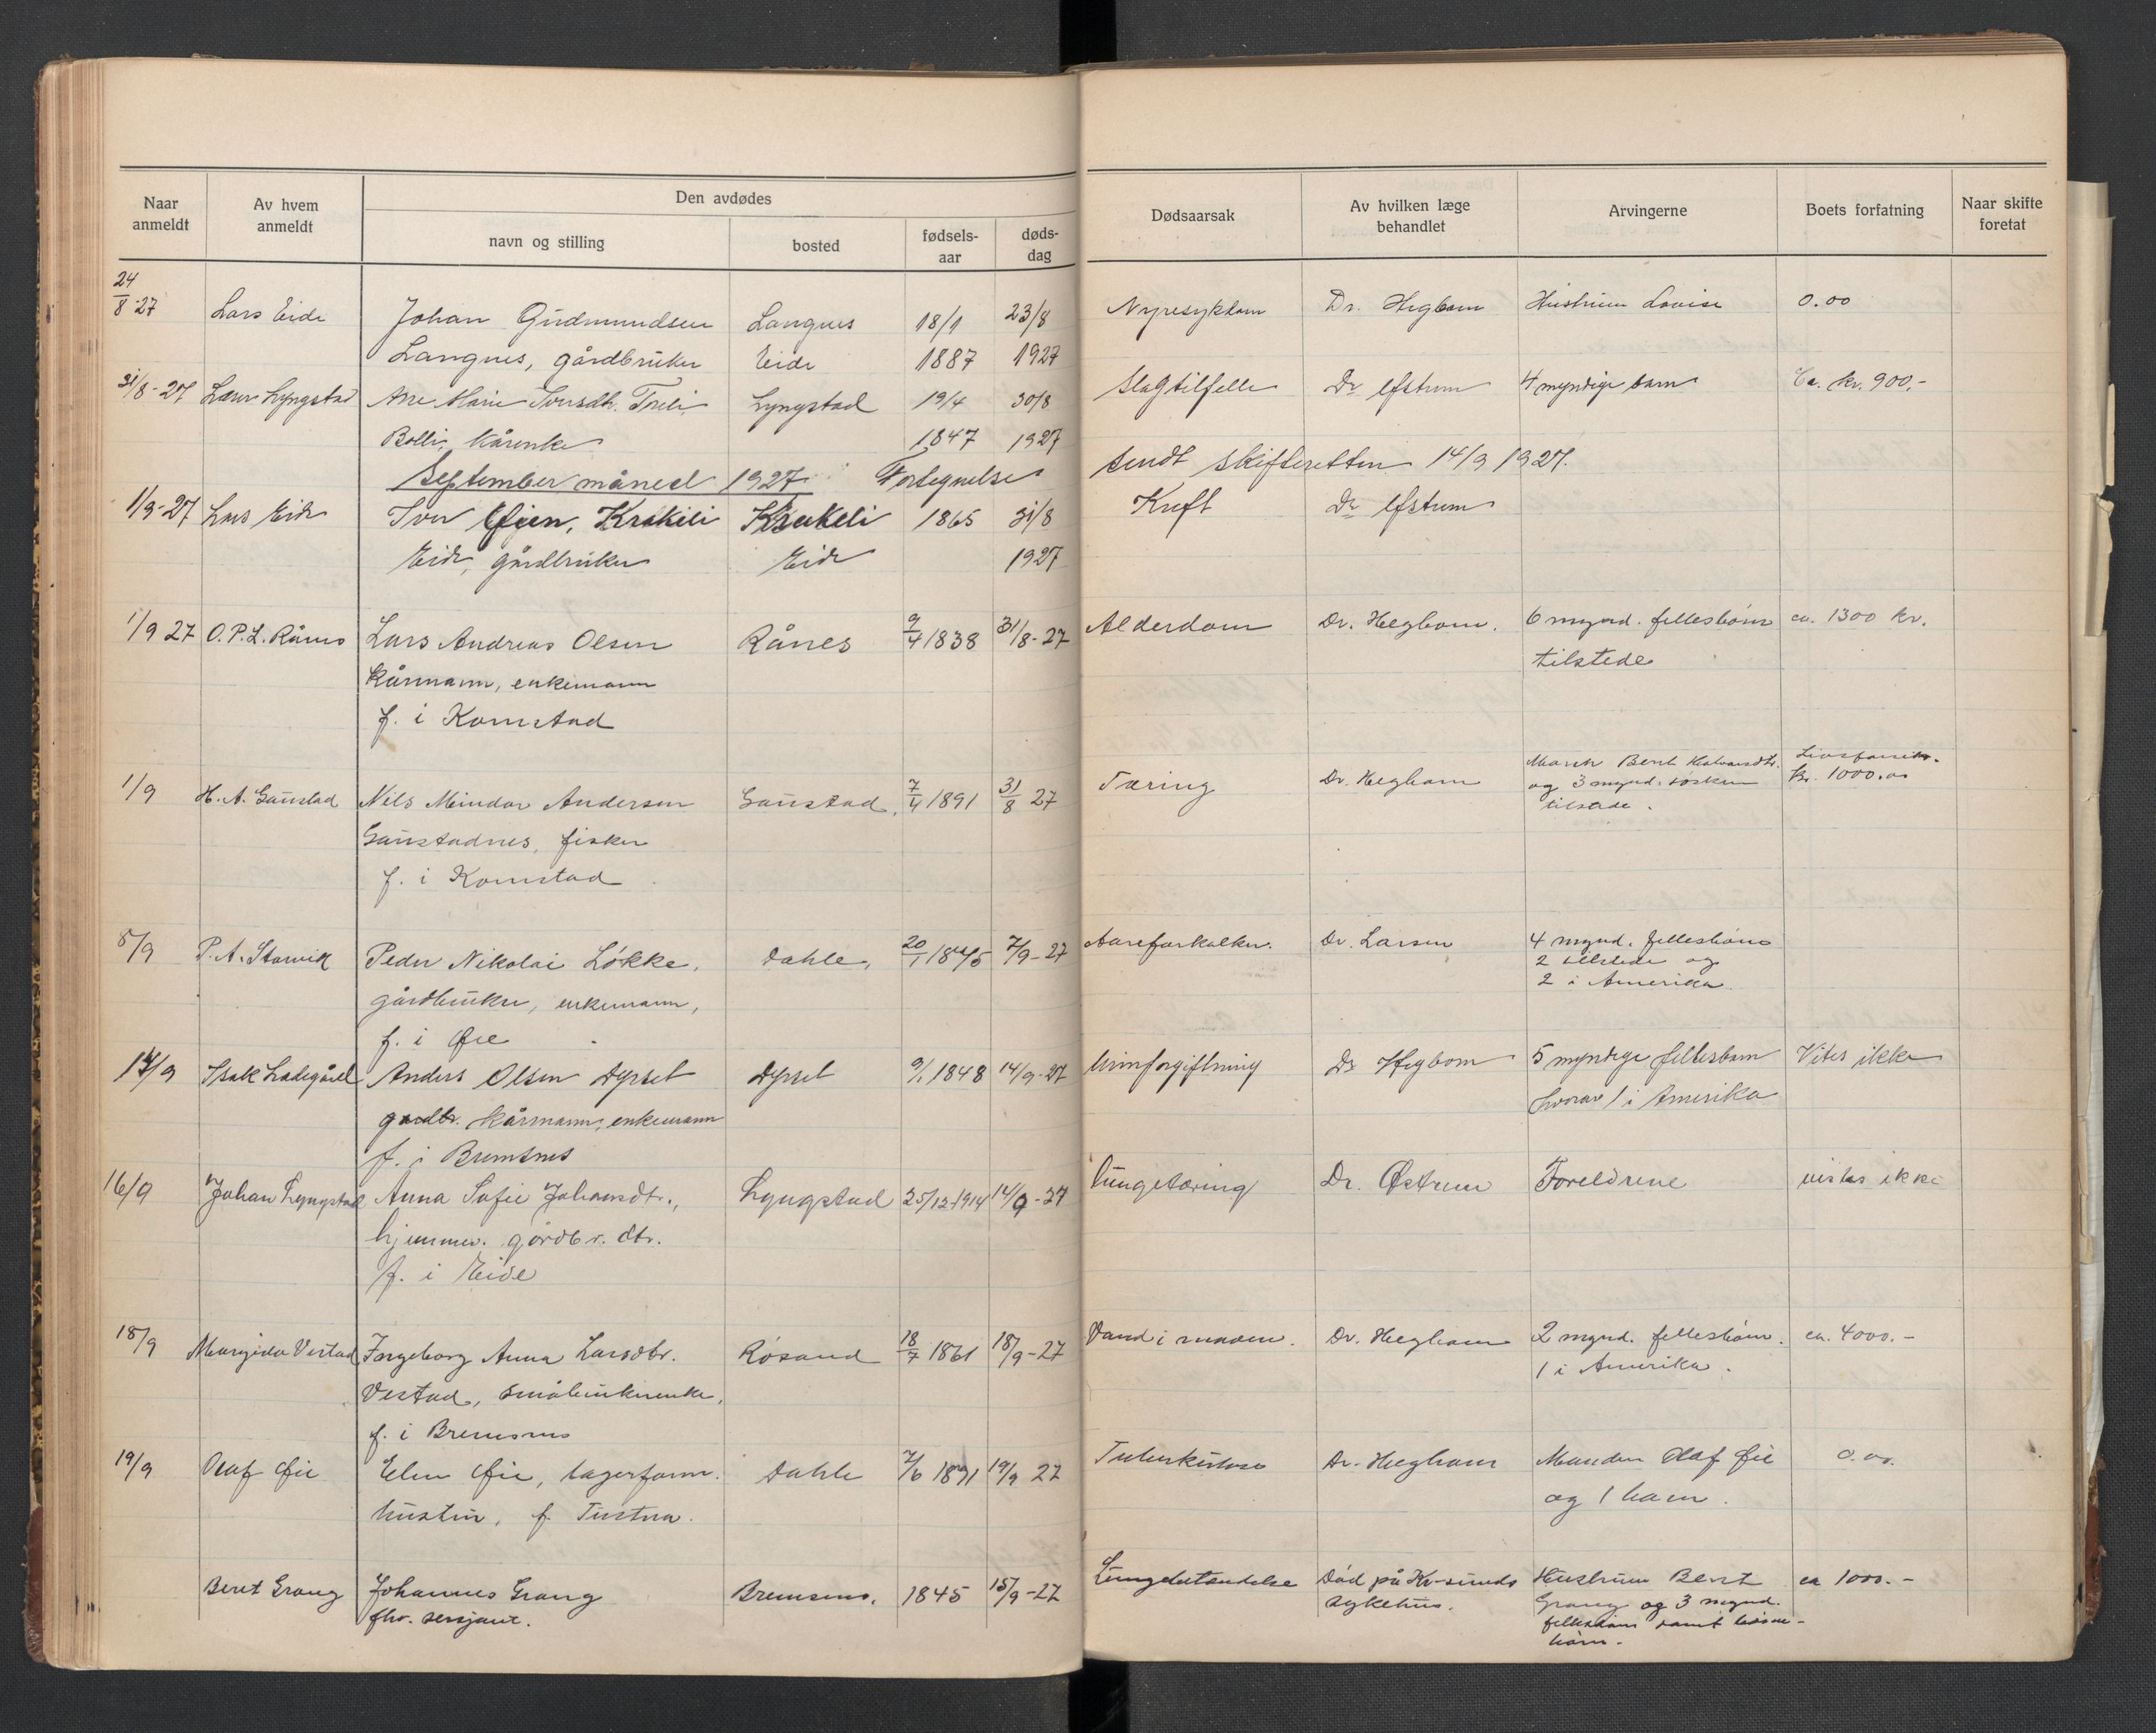 Naar anmeldt
Av hvem anmeldt
Den avdødes
navn og stilling
bosted
fødsels-aar
døds-dag
Dødsaarsak
Av hvilken læge behandlet
Arvingerne
Boets forfatning
Naar skifte foretat
24/8-27 Lars Eide Johan Gudmundsen Langnes 18/1 23/8 Nyresykdom Dr. Hegbom Hustruen Lovise 0.00
Langnes, gårdbruker Eide 1887 1927
31/8-27 Lyngstad Ane Marie Lyngstad 19/4 30/8 Slagtilfelle Dr. Østrem 4 myndige barn Ca. kr. 900.-
Bolli, kårenke 1847 1927
sendt skifteretten 14/9 1927.
September måned 1927. Fortegnelse
1/9-27 Lars Eide Iver Øien, Krakeli Krakeli 1865 31/8 Kreft Dr Østrem
Eide, gårdbruker Eide 1927
1/9 27 O. P. L. Rånes Lars Andreas Olsen Rånes 9/4 1838 31/8-27 Alderdom Dr. Hegbom. 6 mynd. fellesbørn ca. 1300 kr.
Kårmann, enkemann tilstede
f. i Kornstad
1/9 H. A. Gaustad Nils Meindor Andersen Gaustad. 7/4 1891 31/8 27 Tæring Dr. Hegbom Beret Halvorsdtr. kr. 1000.00
og 3 mynd. søsken
tilstede.
Gaustadnes, fisker
f. i Kornstad
8/9 P. A. Storvik Peder Nikolai Løkke, Dahle, 20/1 1845 7/9-27 Aareforkalkn. Dr. Larsen 4 mynd. fellesbørn
2 tilstede og
2 i Amerika
gårdbruker, enkemann,
f. i Øie
14/9 Isak Ladegård Anders Olsen Dyrset Dyrset 9/1 1848 14/9-27 Urinforgiftning Dr Hegbom 5 myndige fellesbarn Vites ikke
gardbr. kårmann, enkemann hvorav 1 i Amerika
f. i Bremsnes
16/9 Johan Lyngstad Anna Sofie Johansdtr., Lyngstad 25/12-1914 14/9-27 Lungetæring Dr. Østrem Foreldrene vites ikke
hjemmev. gårdbr. dtr.
f. i Eide
18/9 Vestad Ingeborg Anna Larsdtr. Røsand 18/7 1861 18/9-27 Vand i maven. Dr. Hegbom 2 mynd. fellesbørn. ca. 4000.-
Vestad, småbrukerenke, 1 i Amerika.
f. i Bremsnes
19/9 Olaf Øie Elen Øie, lagerform. Dahle 7/6 1891 19/9 27 Tuberkulose Dr. Hegbom Manden Olaf Øie 0.00.
hustru, f. Tustna. og 1 barn.
Beret Grong Johannes Grong Bremsnes. 1845 15/9-27 Lungebetændelse Død på Kr-sunds Hustruen Beret ca 1000.-
fhv. sersjant. sykehus. Grong og 3 mynd.
fellesbørn samt
børn.